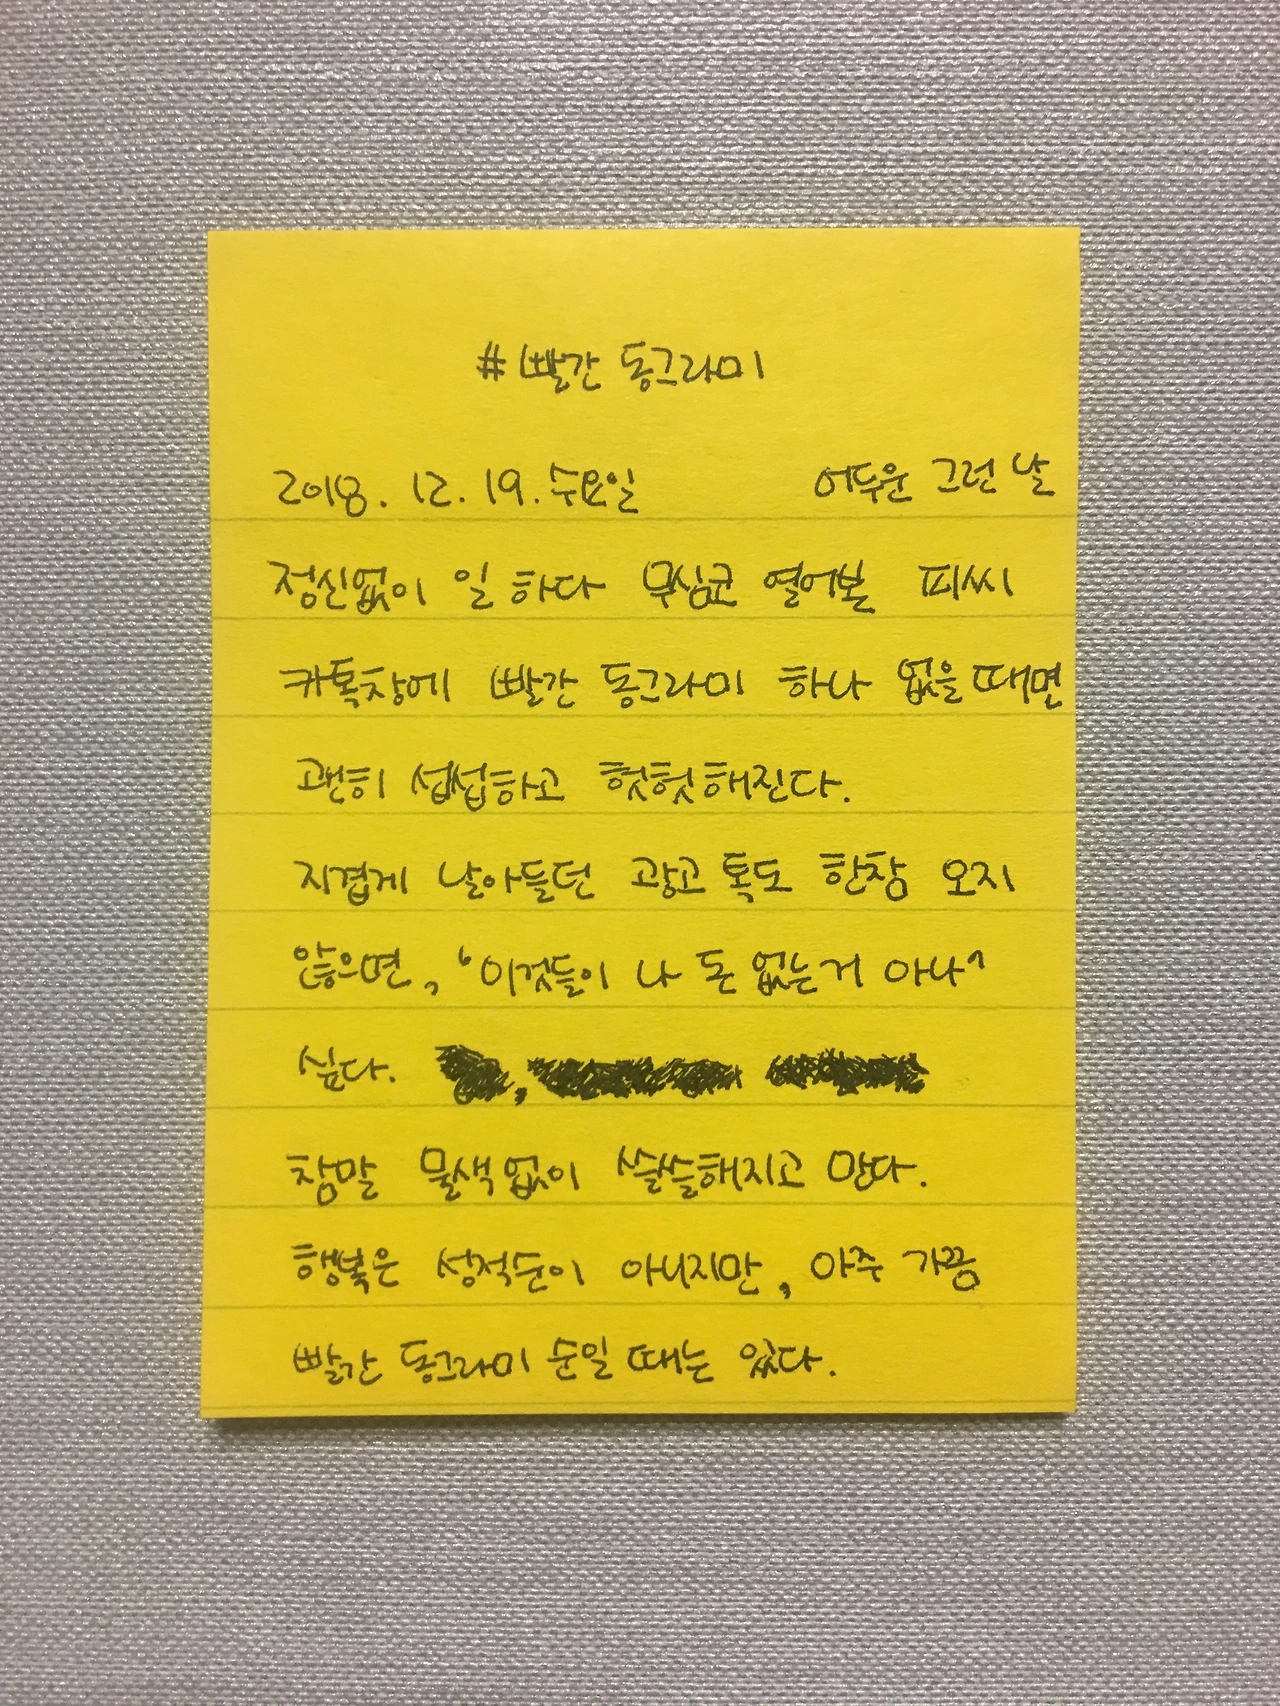 #빨간 동그라미
2018. 12. 19. 수요일 어두운 그런 날
정신없이 일 하다 무심균 열어본 피씨
카톡창에 빨간 동그라미 하나 없을 때면
괜히 섭섭하고 헛헛해진다.
지겹게 날아들던 광고 톡도 한참 오지
않으면, '이것들이 나 돈 없는거 아나'
싶다.
참말 물색없이 쓸쓸해지고 만다.
행복은 성적순이 아니지만, 아주 가끔
빨간 동그라미 순일 때는 있다.